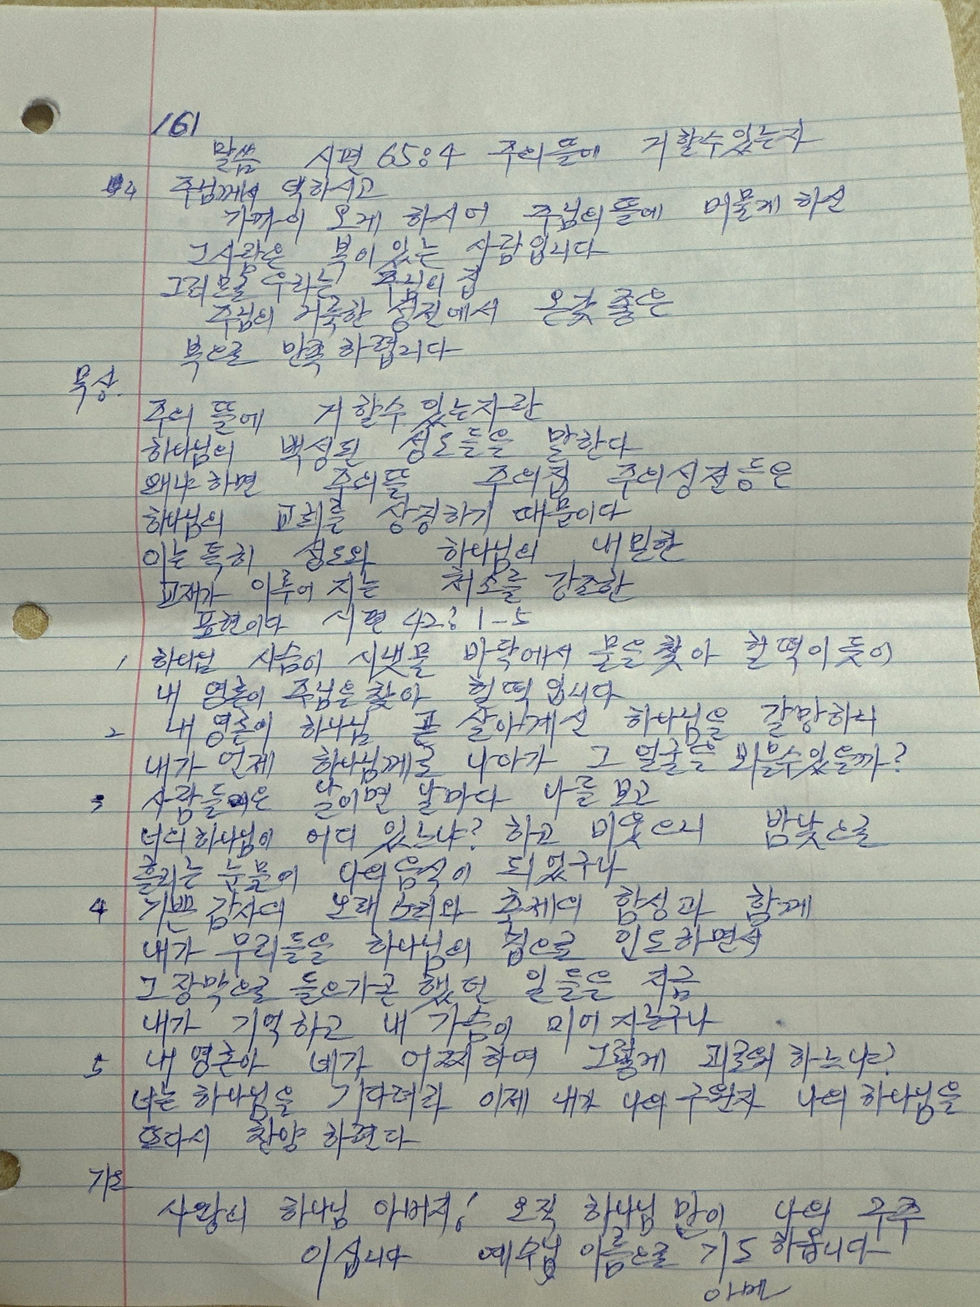 161
말씀 시편 65:4 주의 뜰에 거할수있는자
4 주님께서 택하시고
가까이 오게 하시어 주님의 뜰에 머물게 하신
그사람은 복이 있는 사람입니다
그러므로 우리는 주님의 집
주님의 거룩한 성전에서 온갖 좋은
복으로 만족하렵니다
묵상.
주의 뜰에 거할수 있는자란
하나님의 백성된 성도들을 말한다
왜냐하면 주의뜰 주의집 주의성전등은
하나님의 교회를 상징하기 때문이다
이는 특히 성도와 하나님의 내밀한
교제가 이루어 지는 처소를 강조한
표현이다 시편 42:1-5
1 하나님 사슴이 시냇물 바닥에서 물을 찾아 헐떡이듯이
내 영혼이 주님을 찾아 헐떡입니다
2 내 영혼이 하나님 곧 살아계신 하나님을 갈망하니
내가 언제 하나님께로 나아가 그 얼굴을 뵈올수있을까?
3 사람들은 날이면 날마다 나를 보고
너의하나님이 어디 있느냐? 하고 비웃으니 밤낮으로
흘리는 눈물이 나의음식이 되었구나
4 기쁜 감사의 노래 소리와 축제의 함성과 함께
내가 무리들을 하나님의 집으로 인도하면서
그 장막으로 들으가곤 했던 일들을 지금
내가 기억하고 내 가슴이 미어지는구나
5 내 영혼아 네가 어찌하여 그렇게 괴로워하느냐?
너는 하나님을 기다려라 이제 내가 나의구원자 나의하나님을
또다시 찬양하련다
기도
사랑의 하나님 아버지! 오직 하나님 만이 나의 구주
이십니다 예수님 이름으로 기도 하옵니다
아멘